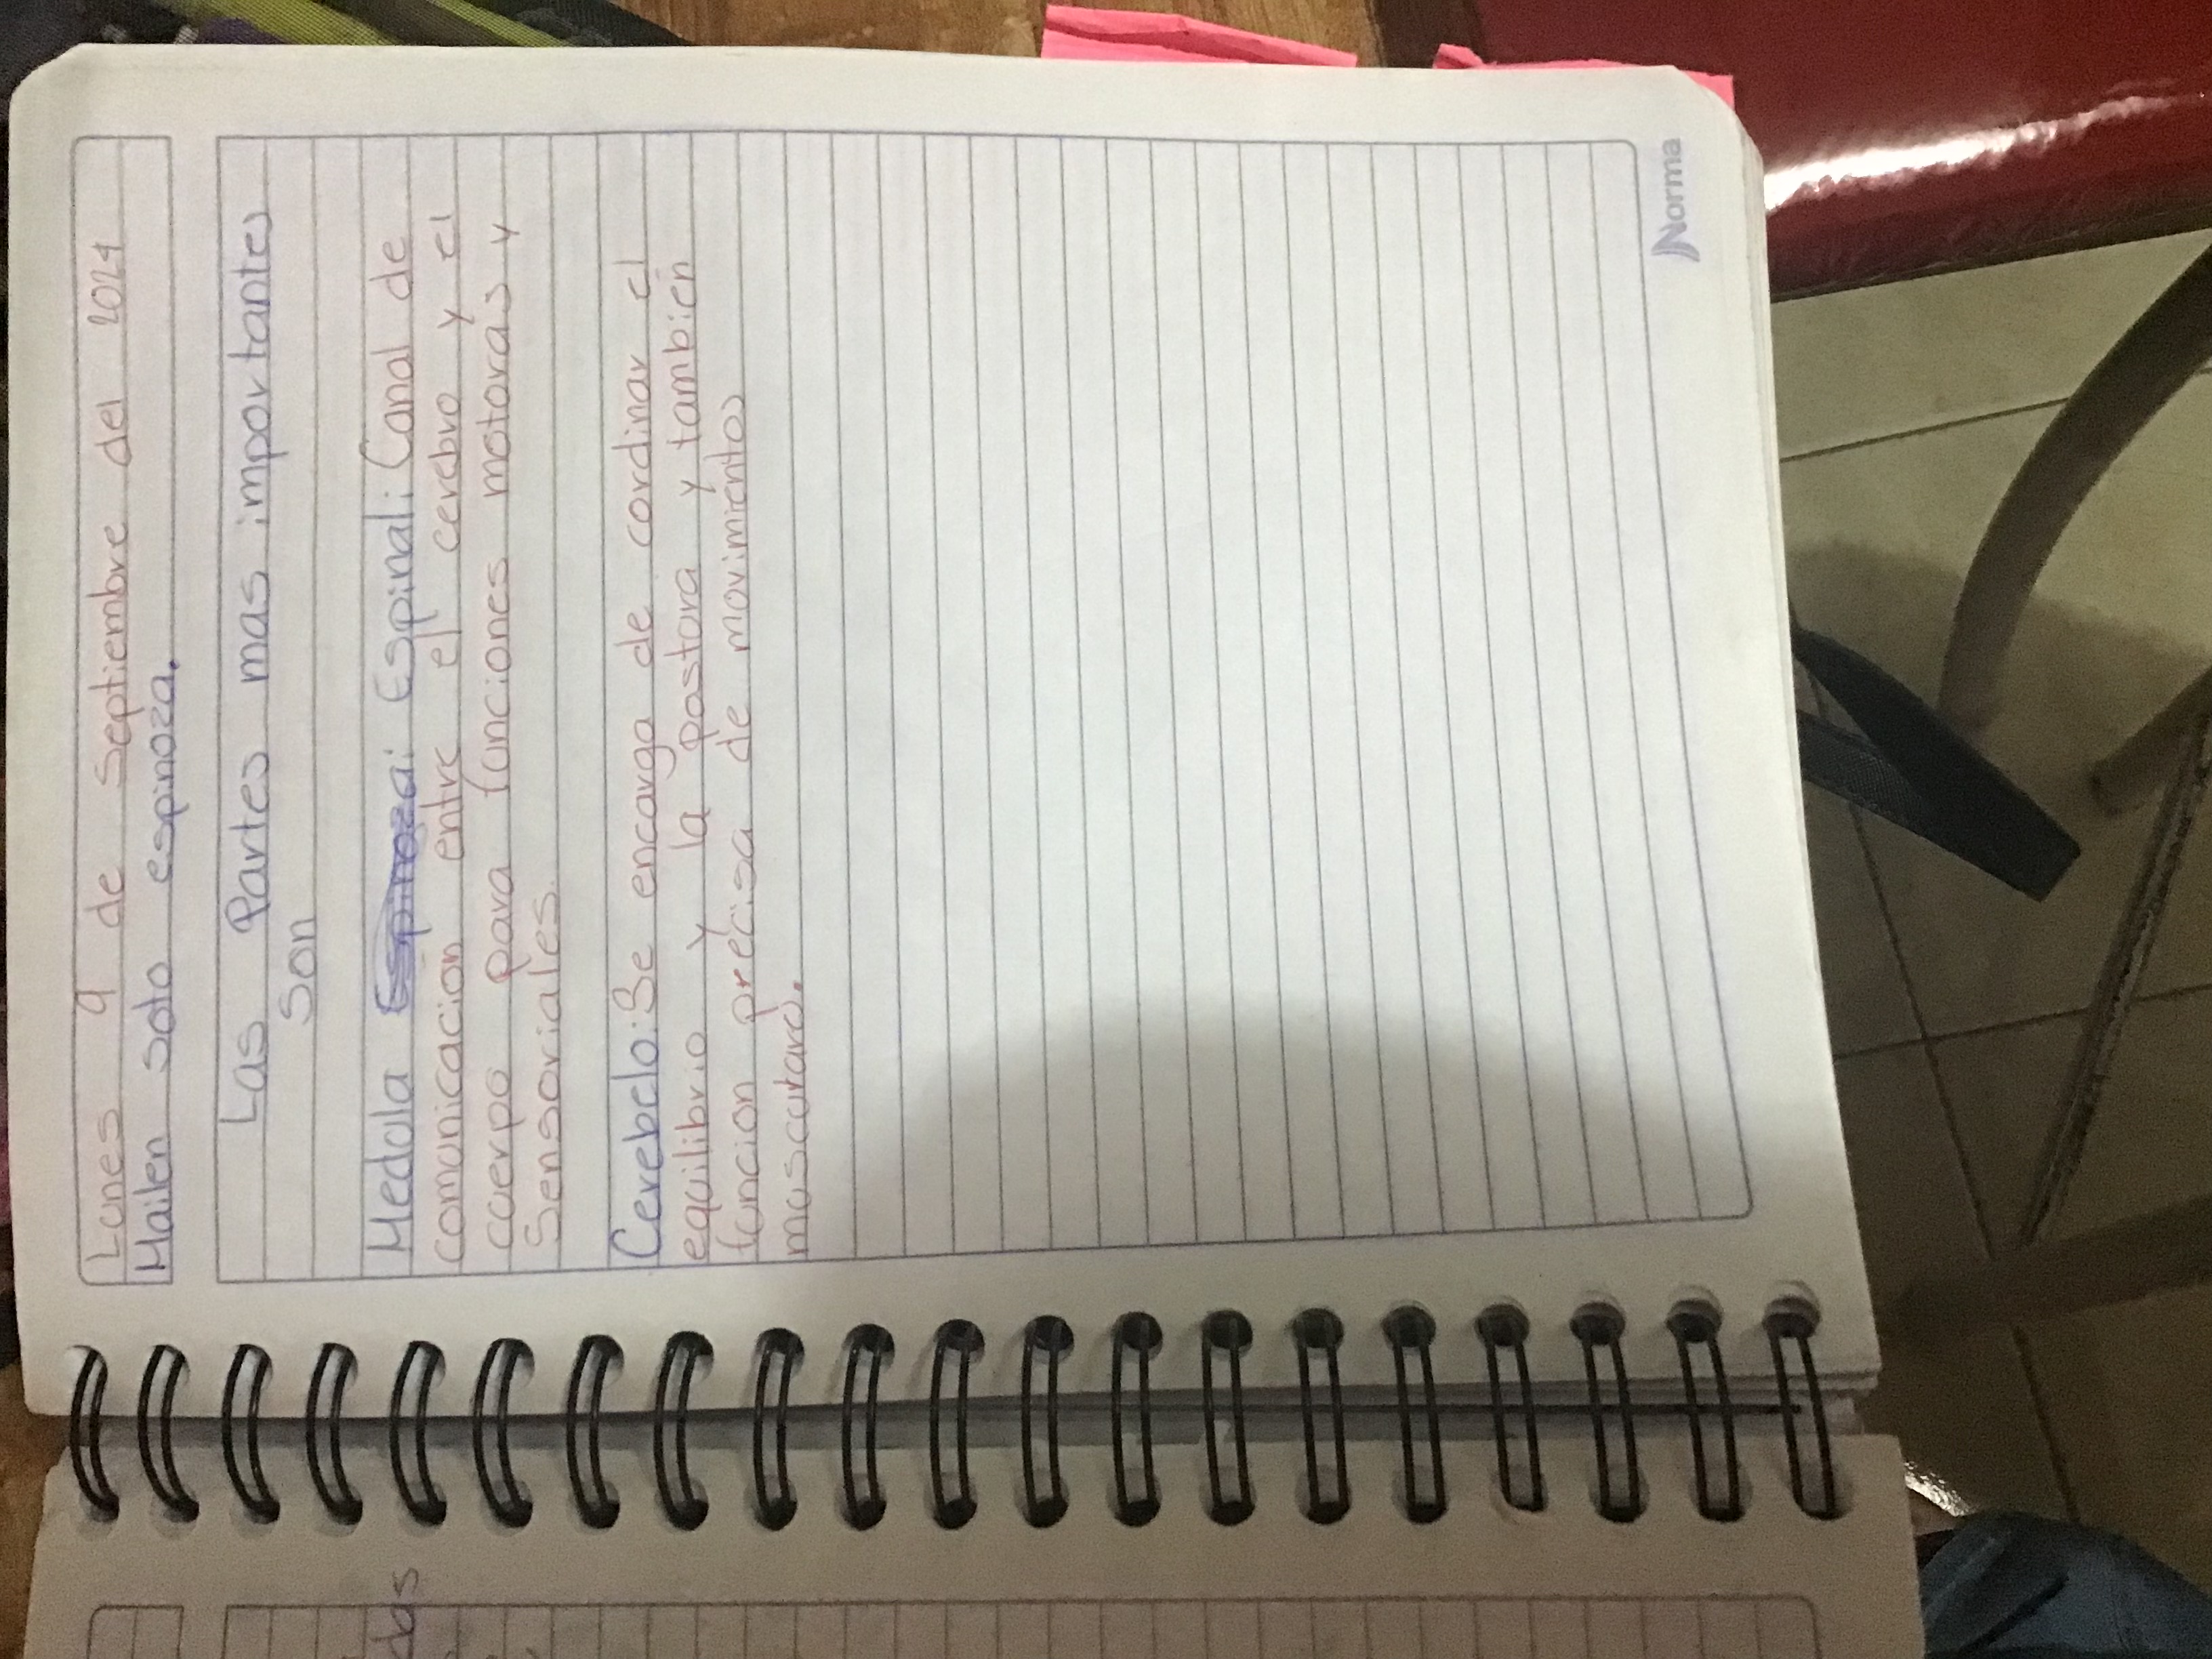 Lunes 9 de septiembre del 2024
Mailen soto espinoza.
Las Partes mas importantes
son
Medula Espinal: Canal de
comunicacion entre el cerebro y el
cuerpo para funciones motoras y
Sensoriales.
Cerebelo: Se encarga de cordinar el
equilibrio y la postura y tambien
funcion precisa de movimientos
musculard.
Norma
das